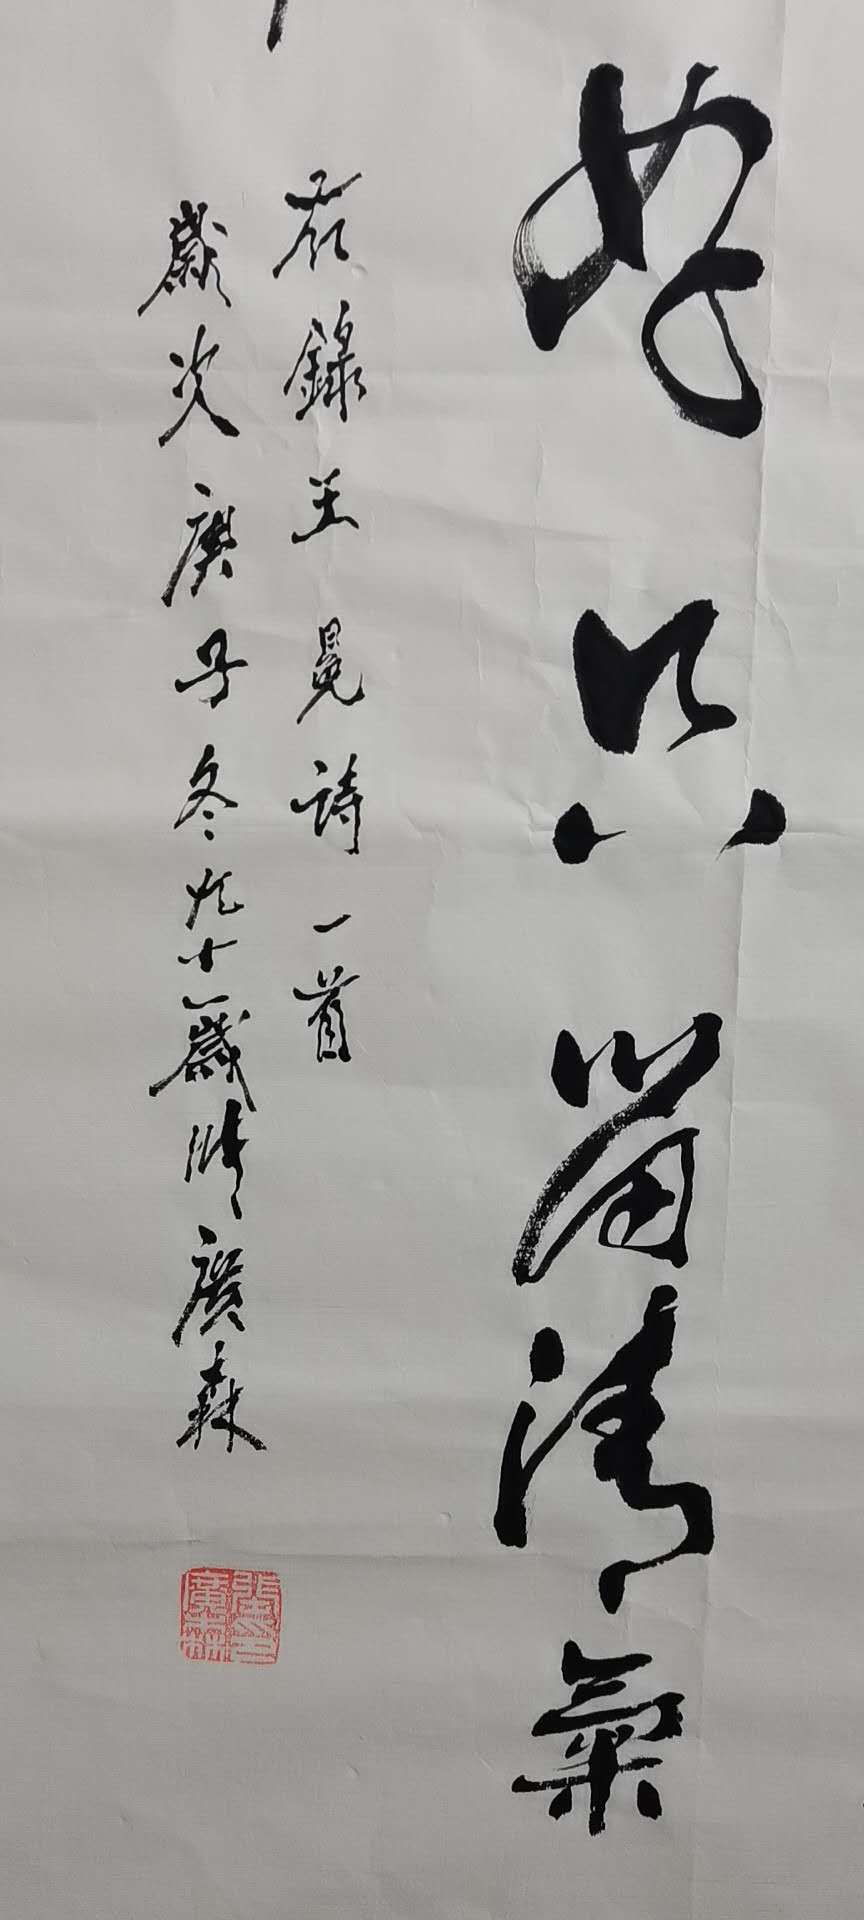 好只留清氣
錄王冕詩一首
歲次庚子冬九十一歲廣森
廣森